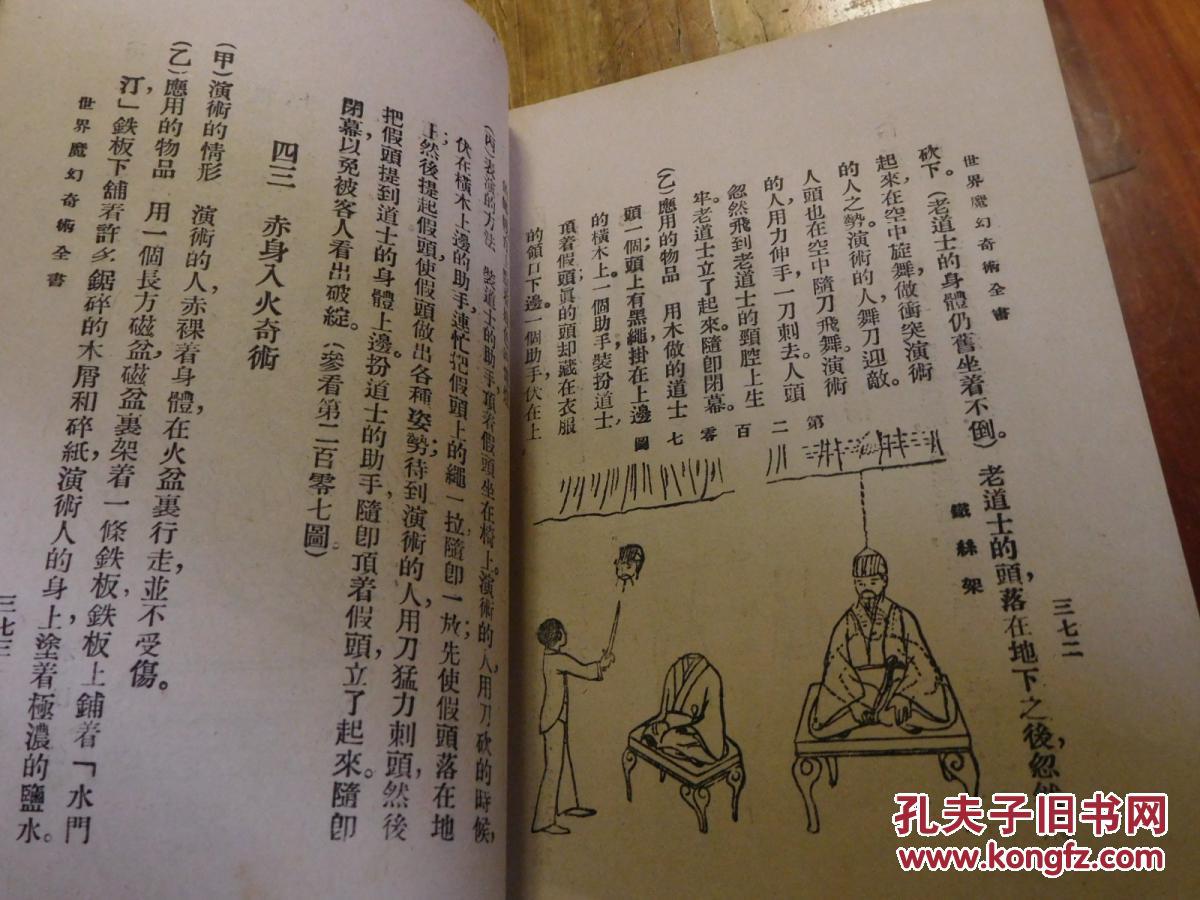 世界魔幻奇術全書
三七二
砍下。（老道士的身體仍舊坐着不倒。）老道士的頭，落在地下之後，忽然
起來在空中旋舞做衝突演術
的人之勢。演術的人舞刀迎敵。
人頭也在空中隨刀飛舞。演術
的人用力伸手一刀刺去。人頭
忽然飛到老道士的頸腔上生
牢。老道士立了起來。隨卽閉幕。
(乙)應用的物品　用木做的道士
頭一個；頭上有黑繩掛在上邊
的橫木上。一個助手裝扮道士
頂着假頭；眞的頭却藏在衣服
的領口下邊。一個助手伏在上
鐵絲架
第二百零七圖
(丙)表演的方法　裝道士的助手，頂着假頭坐在椅上。演術的人，用刀砍的時候，
伏在橫木上邊的助手連忙把假頭上的繩一拉，隨卽一放；先使假頭落在地
上；然後提起假頭，使假頭做出各種姿勢；待到演術的人，用刀猛力刺頭，然後
把假頭提到道士的身體上邊。扮道士的助手，隨卽頂着假頭，立了起來。隨卽
閉幕，以免被客人看出破綻。（參看第二百零七圖）
四三　赤身入火奇術
(甲)演術的情形　演術的人，赤裸着身體，在火盆裏行走，並不受傷。
(乙)應用的物品　用一個長方磁盆，磁盆裏架着一條鉄板，鉄板上鋪着「水門
汀」，鉄板下舖着許多鋸碎的木屑和碎紙，演術人的身上，塗着極濃的鹽水。
世界魔幻奇術全書
三七三
孔夫子旧书网
www.kongfz.com